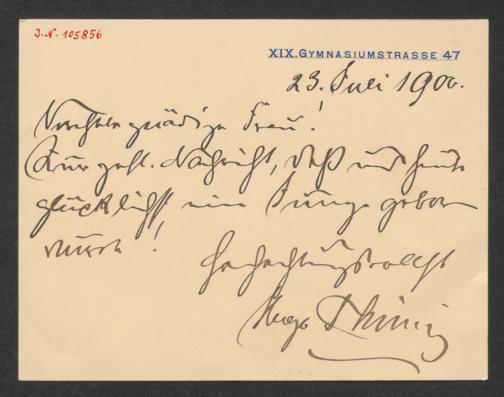 J.N. 105856
XIX. GYMNASIUMSTRASSE 47
23. Juli 1900.
Verehrte gnädige Frau!
Zur gefl. Nachricht, daß uns heute
glücklichst ein Junge geboren
wurde!
Hochachtungsvollst
Hugo Thimig